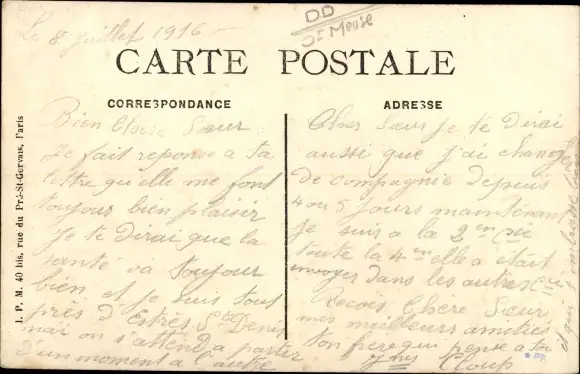 Le 8 juillet 1916
DD
Dt Meuse
CARTE POSTALE
CORRESPONDANCE
ADRESSE
J. P. M. 40 bis, rue du Pré-St-Gervais, Paris
Bien Chère Sœur
Je fait reponse a ta
lettre qu'elle me font
toujour bien plaisir
Je te dirai que la
santé va toujour
bien et je suis tout
près d'Estrès St Denis
mai on s'attend a partir
d'un moment a l'autre
Cher Sœur Je te Dirai
aussi que j'ai changer
de compagnie depuis
4 ou 5 jours maintenant
je suis a la 2em Cie
toute la 4em elle a etait
envoyer dans les autres Cie
Recois Chère Sœur
mes meilleurs amities
ton frere qui pense a toi
Cloup
et qui t'embrasse